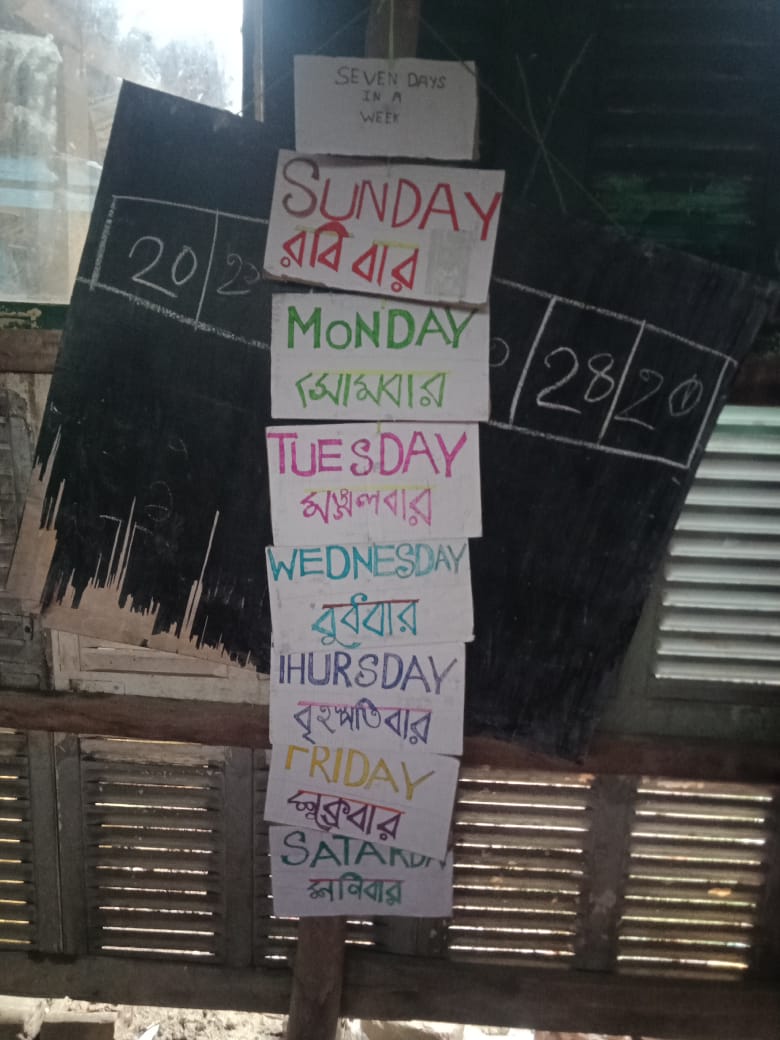 SEVEN DAYS
IN A
WEEK
SUNDAY
রবি বার
MONDAY
সোমবার
TUESDAY
মঙ্গলবার
WEDNESDAY
বুর্ধবার
THURSDAY
বৃহস্পতিবার
FRIDAY
শুক্রবার
SATARDA
শনিবার
20 23
28 20